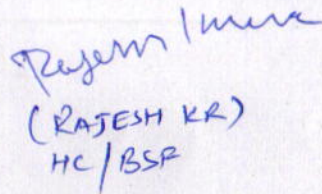 Rajesh Kumar
(RAJESH KR)
HC/BSF